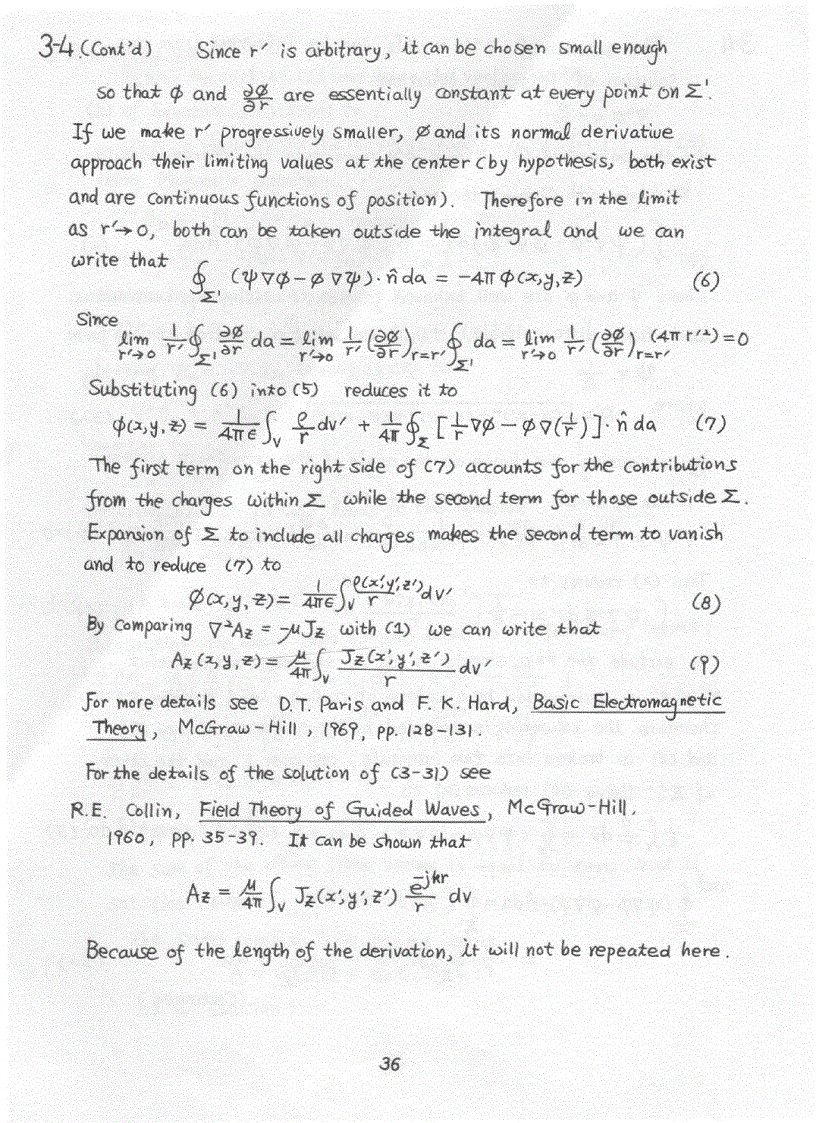 3-4.(Cont'd) Since r' is arbitrary, it can be chosen small enough
so that ϕ and ∂ϕ/∂r are essentially constant at every point on Σ'.
If we make r' progressively smaller, ϕ and its normal derivative
approach their limiting values at the center (by hypothesis, both exist
and are continuous functions of position). Therefore in the limit
as r'→0, both can be taken outside the integral and we can
write that
∮_Σ' (ψ∇ϕ - ϕ∇ψ)·n̂ da = -4π ϕ(x,y,z) (6)
Since
lim_{r'→0} 1/r' ∮_Σ' ∂ϕ/∂r da = lim_{r'→0} 1/r' (∂ϕ/∂r)_{r=r'} ∮_Σ' da = lim_{r'→0} 1/r' (∂ϕ/∂r)_{r=r'} (4π r'²) = 0
Substituting (6) into (5) reduces it to
ϕ(x,y,z) = 1/4πε ∫_V ρ/r dv' + 1/4π ∮_Σ [1/r ∇ϕ - ϕ∇(1/r)]·n̂ da (7)
The first term on the right side of (7) accounts for the contributions
from the charges within Σ while the second term for those outside Σ.
Expansion of Σ to include all charges makes the second term to vanish
and to reduce (7) to
ϕ(x,y,z) = 1/4πε ∫_V ρ(x',y',z')/r dv' (8)
By comparing ∇²Az = -μJz with (1) we can write that
Az(x,y,z) = μ/4π ∫_V Jz(x',y',z')/r dv' (9)
For more details see D.T. Paris and F. K. Hard, Basic Electromagnetic
Theory, McGraw-Hill, 1969, pp. 128-131.
For the details of the solution of (3-31) see
R.E. Collin, Field Theory of Guided Waves, McGraw-Hill.
1960, pp. 35-39. It can be shown that
Az = μ/4π ∫_V Jz(x',y',z') e^{-jkr}/r dv
Because of the length of the derivation, it will not be repeated here.
36